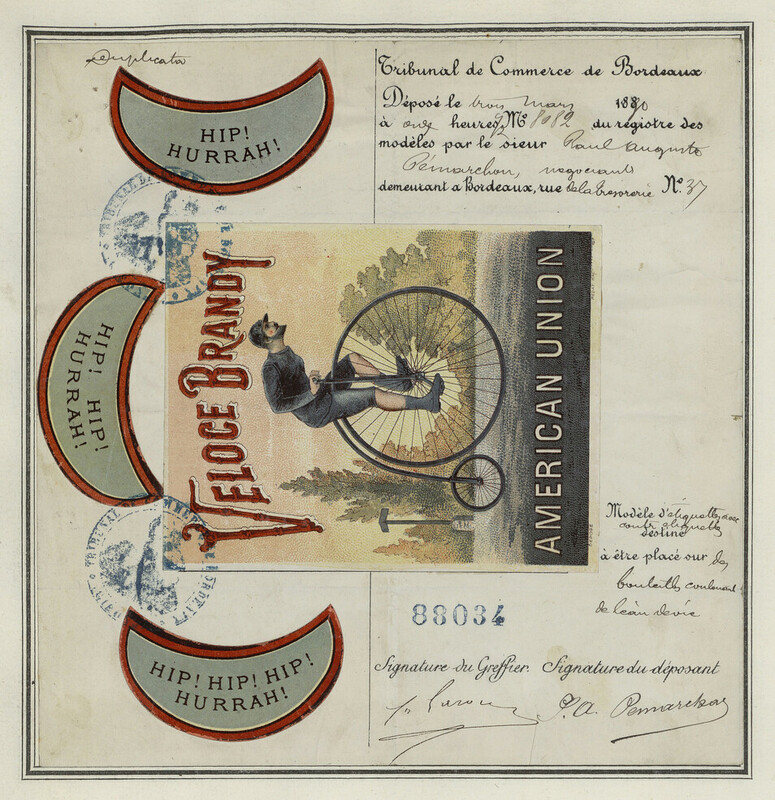 Duplicata
HIP!
HURRAH!
HIP! HIP!
HURRAH!
HIP! HIP! HIP!
HURRAH!
VELOCE BRANDY
AMERICAN UNION
Tribunal de Commerce de Bordeaux
Déposé le trois Mars 1880
à onze heures No 8082 du régistre des
modèles par le sieur Raul Auguste
Pémarchon, négociant
demeurant a Bordeaux, rue de la tresorerie No. 37
Modèle d'étiquettes avec
contre étiquette
destiné
à être placé sur des
bouteilles contenant
de l'eau de vie
88034
Signature du Greffier. Signature du déposant
P. A. Pemarchon